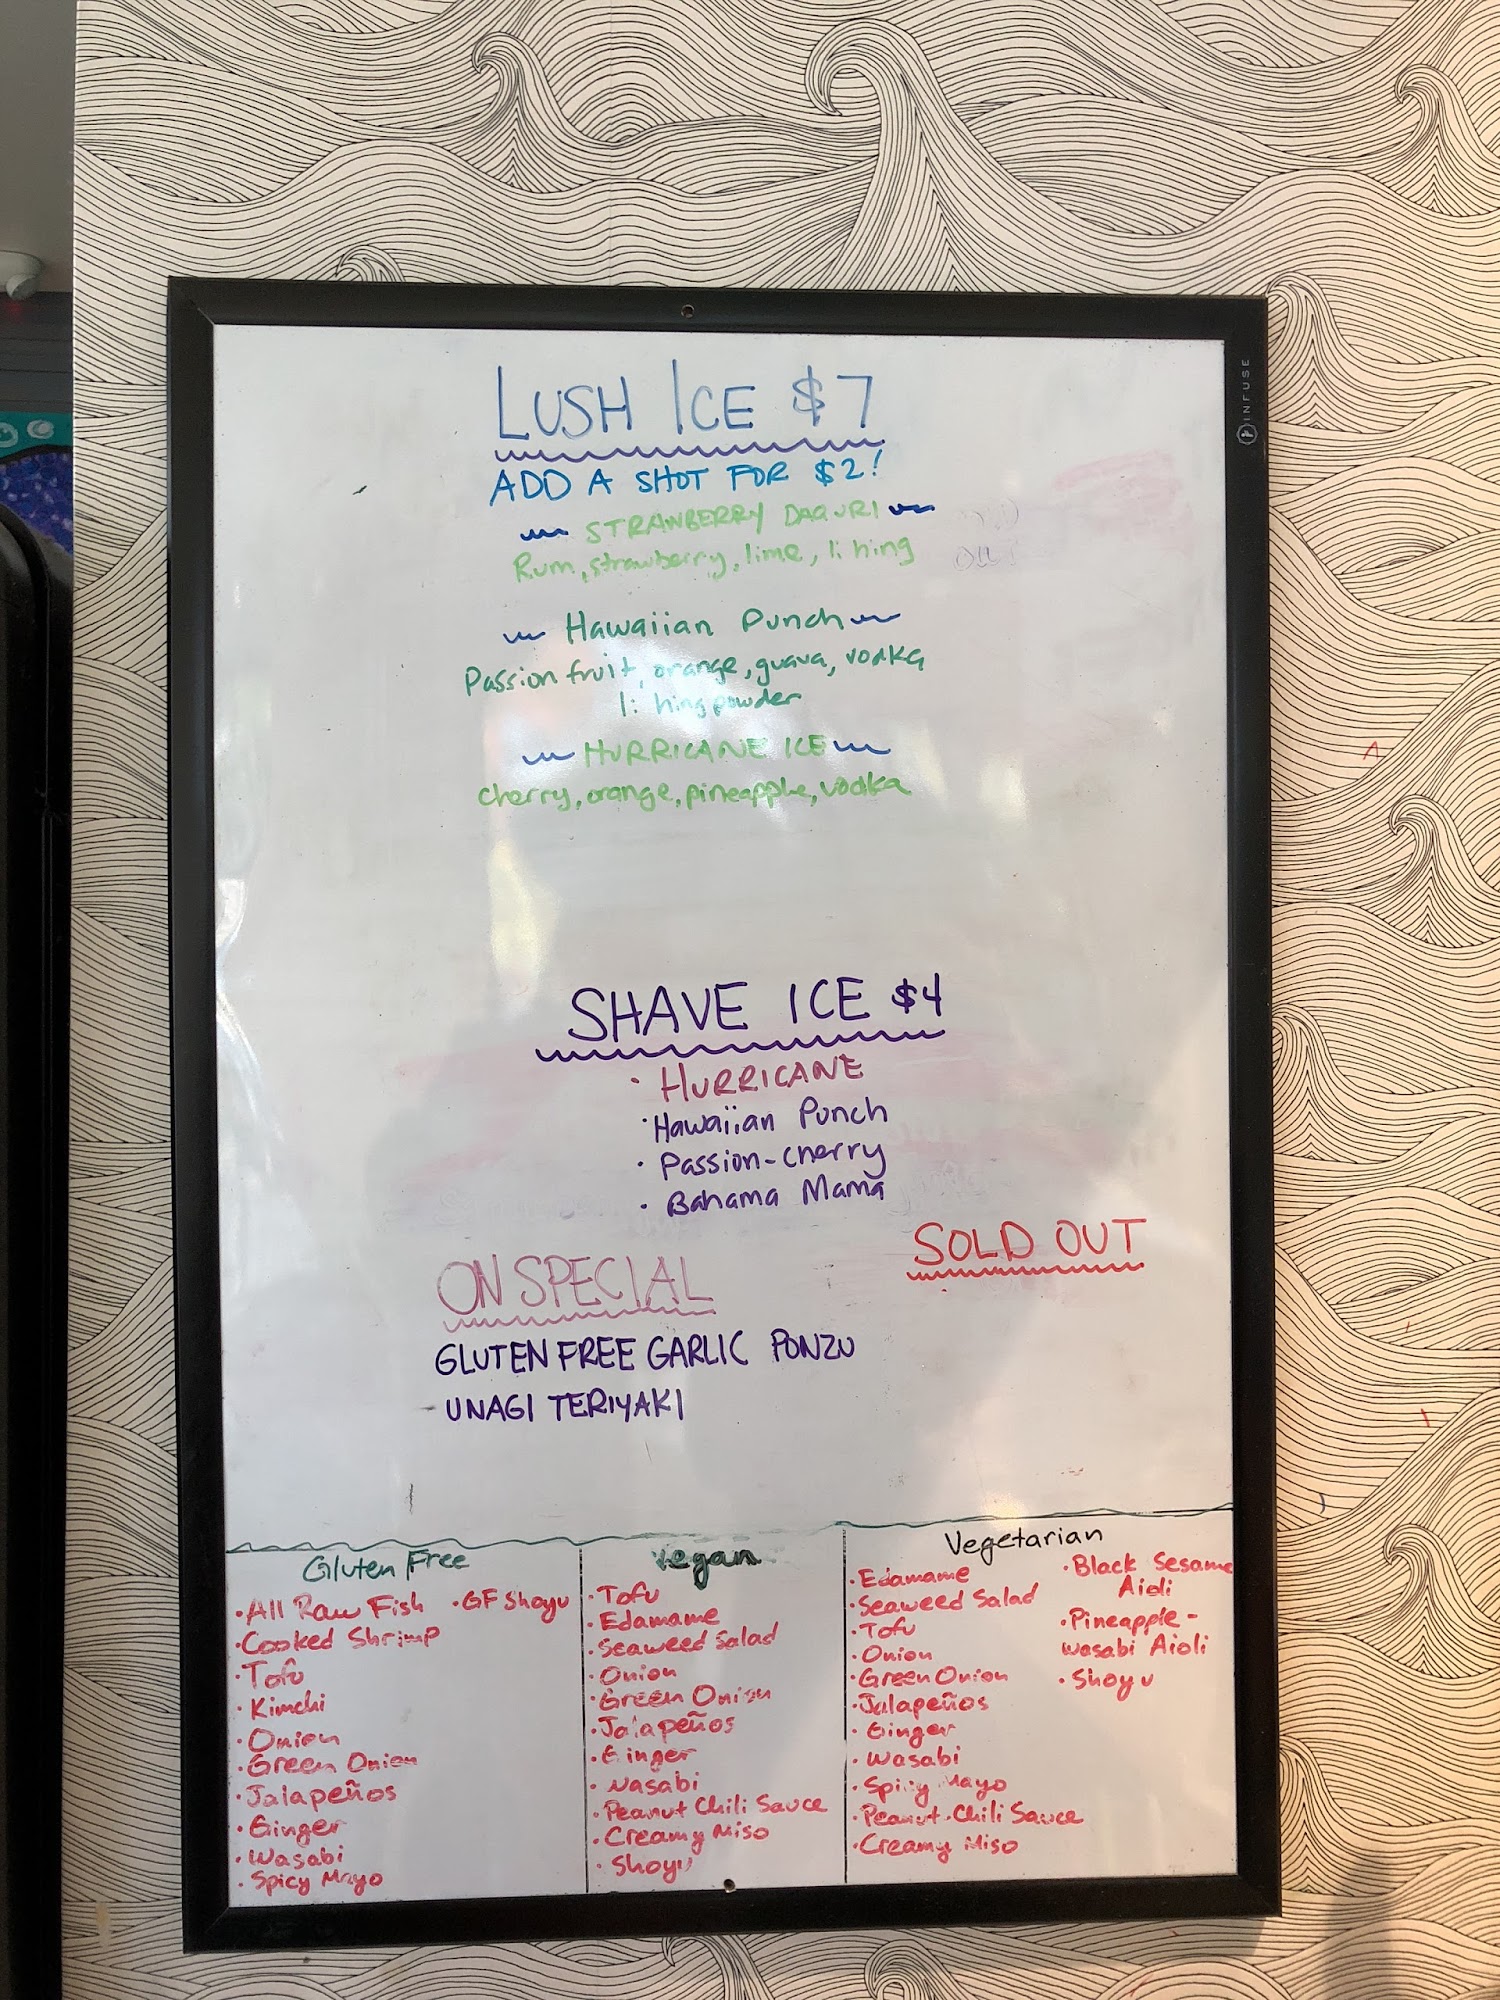 LUSH ICE $7
ADD A SHOT FOR $2!
STRAWBERRY DAQURI
Rum, strawberry, lime, li hing
Hawaiian Punch
Passion fruit, orange, guava, vodka
li hing powder
HURRICANE ICE
cherry, orange, pineapple, vodka
SHAVE ICE $4
· HURRICANE
· Hawaiian Punch
· Passion-cherry
· Bahama Mama
SOLD OUT
ON SPECIAL
GLUTEN FREE GARLIC PONZU
- UNAGI TERIYAKI
Gluten Free
· All Raw Fish
· Cooked Shrimp
· Tofu
· Kimchi
· Onion
· Green Onion
· Jalapeños
· Ginger
· Wasabi
· Spicy Mayo
· GF Shoyu
Vegan
· Tofu
· Edamame
· Seaweed Salad
· Onion
· Green Onion
· Jalapeños
· Ginger
· Wasabi
· Peanut Chili Sauce
· Creamy Miso
· Shoyu
Vegetarian
· Edamame
· Seaweed Salad
· Tofu
· Onion
· Green Onion
· Jalapeños
· Ginger
· Wasabi
· Spicy Mayo
· Peanut Chili Sauce
· Creamy Miso
· Black Sesame
Aioli
· Pineapple -
Wasabi Aioli
· Shoyu
INFUSE